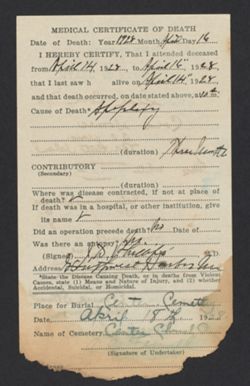 MEDICAL CERTIFICATE OF DEATH
Date of Death: Year 1928 Month April Day 16
I HEREBY CERTIFY, That I attended deceased
from April 14 1928 to April 16" 1928
that I last saw h alive on April 14" 1928
and that death occurred, on date stated above, at m
Cause of Death* Apoplexy
(duration)
CONTRIBUTORY
(Secondary)
(duration)
Where was disease contracted, if not at place of
death?
If death was in a hospital, or other institution, give
its name
Did an operation precede death? No
Was there an autopsy? No
(Signed) M.D.)
Address
*State the Disease Causing Death, or in deaths from Violent
Causes, state (1) Means and Nature of Injury, and (2) whether
Accidental, Suicidal, or Homicidal.
Place for Burial Center Cemetery
Date, April 18th 1928
Name of Cemetery, Center
(Signature of Undertaker)